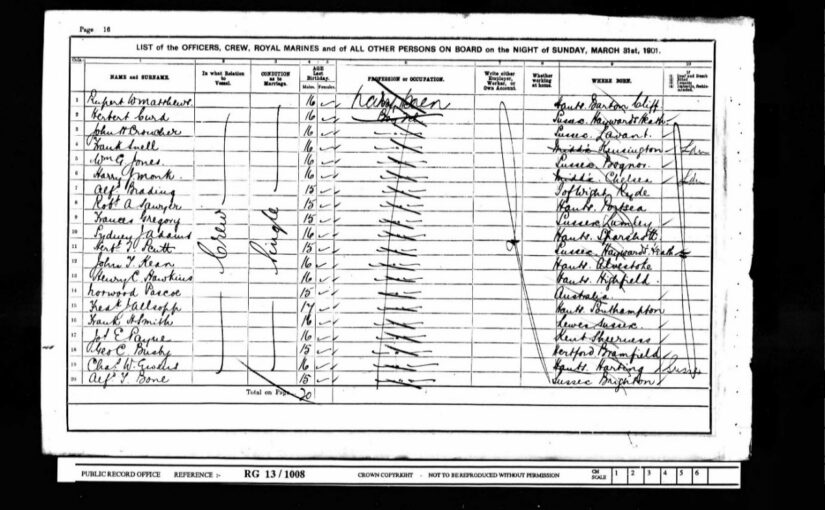 Page 16
LIST of the OFFICERS, CREW, ROYAL MARINES and of ALL OTHER PERSONS ON BOARD on the NIGHT of SUNDAY, MARCH 31st, 1901.
Cols. 1 2 3 4 5 6 7 8 9 10
NAME and SURNAME. In what Relation to Vessel. CONDITION as to Marriage. AGE Last Birthday. Males. Females. PROFESSION or OCCUPATION. Write either Employer, Worker, or Own Account. Whether working at home. WHERE BORN.
1 Rupert W Matthews 16 Hants. Barton Cliff
2 Herbert Curd 16 Sussex Haywards Heath
3 John H Crowcher 16 Sussex Lavant
4 Frank Snell 16 Middx Kensington Lon
5 Wm G Jones 16 Sussex Bognor
6 Harry J Monk 16 Middx Chelsea Lon
7 Alfd Brading 15 I of Wight Ryde
8 Robt A Sawyer 15 Hants. Portsea
9 Frances Gregory 15 Sussex Lumley
10 Sydney J Adams 16 Hants. Sparsholt
11 Herbt T. 15 Sussex, Haywards Heath
12 John T. Kean 16 Hants Alverstoke
13 Henry C. Hawkins 16 Hants. Highfield
14 Norwood Pascoe 15 Australia
15 Allsopp 17 Hants Southampton
16 Frank H Smith 16 Lewes Sussex
17 Jas E Payne 16 Kent Sheerness
18 Geo C. Busby 15 Hertford Bramfield
19 Chas W. 16 Hants Harting Sussex
20 Alfd T. Bone 15 Sussex Brighton
Crew Single
Total on Page 20
PUBLIC RECORD OFFICE REFERENCE :- RG 13/1008 CROWN COPYRIGHT - NOT TO BE REPRODUCED WITHOUT PERMISSION CM SCALE 1 2 3 4 5 6